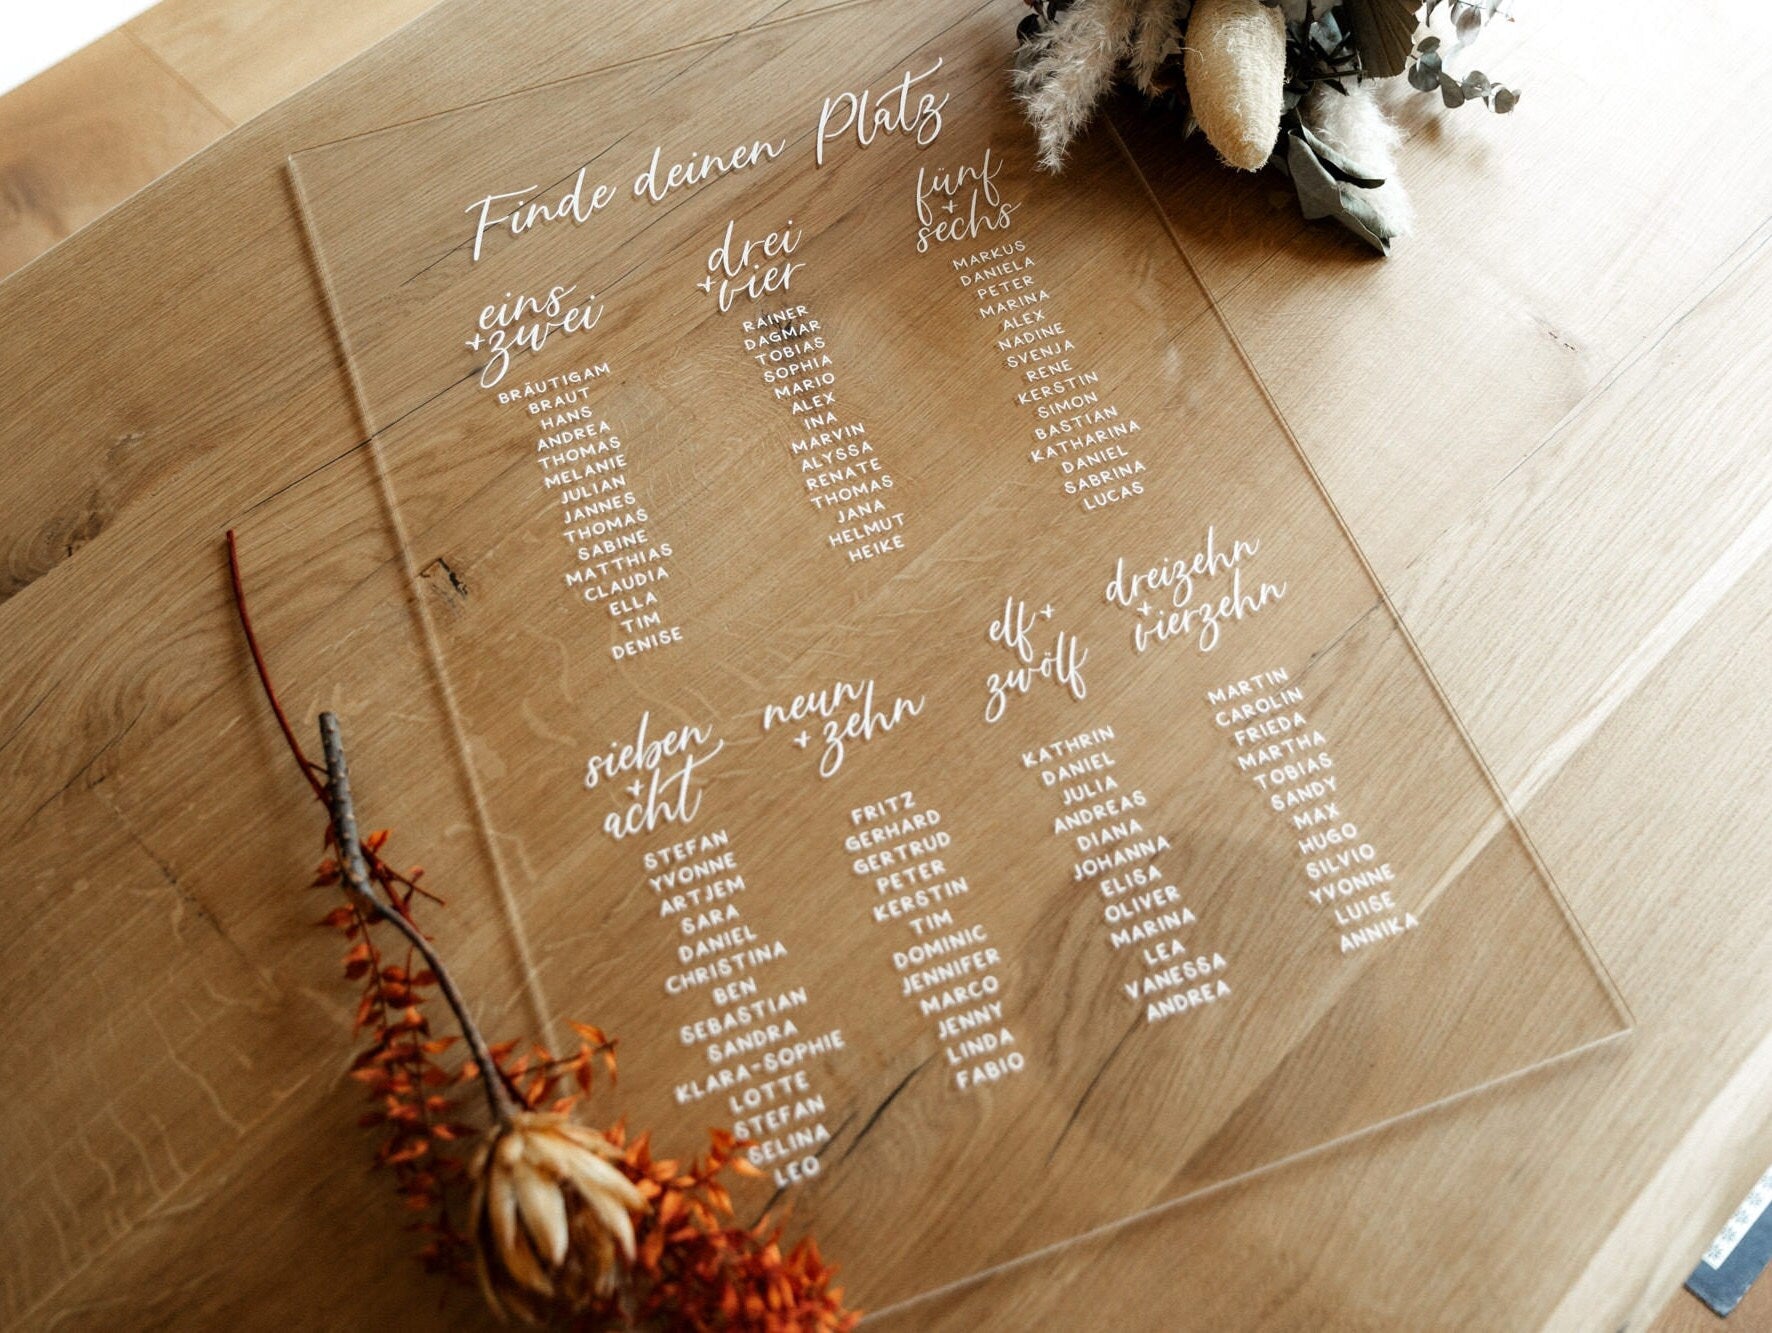 Finde deinen Platz
eins
+zwei
BRÄUTIGAM
BRAUT
HANS
ANDREA
THOMAS
MELANIE
JULIAN
JANNES
THOMAS
SABINE
MATTHIAS
CLAUDIA
ELLA
TIM
DENISE
drei
+vier
RAINER
DAGMAR
TOBIAS
SOPHIA
MARIO
ALEX
INA
MARVIN
ALYSSA
RENATE
THOMAS
JANA
HELMUT
HEIKE
fünf
+
sechs
MARKUS
DANIELA
PETER
MARINA
ALEX
NADINE
SVENJA
RENE
KERSTIN
SIMON
BASTIAN
KATHARINA
DANIEL
SABRINA
LUCAS
sieben
+
acht
STEFAN
YVONNE
ARTJEM
SARA
DANIEL
CHRISTINA
BEN
SEBASTIAN
SANDRA
KLARA-SOPHIE
LOTTE
STEFAN
SELINA
LEO
neun
+ zehn
FRITZ
GERHARD
GERTRUD
PETER
KERSTIN
TIM
DOMINIC
JENNIFER
MARCO
JENNY
LINDA
FABIO
elf +
zwölf
KATHRIN
DANIEL
JULIA
ANDREAS
DIANA
JOHANNA
ELISA
OLIVER
MARINA
LEA
VANESSA
ANDREA
dreizehn
+
vierzehn
MARTIN
CAROLIN
FRIEDA
MARTHA
TOBIAS
SANDY
MAX
HUGO
SILVIO
YVONNE
LUISE
ANNIKA